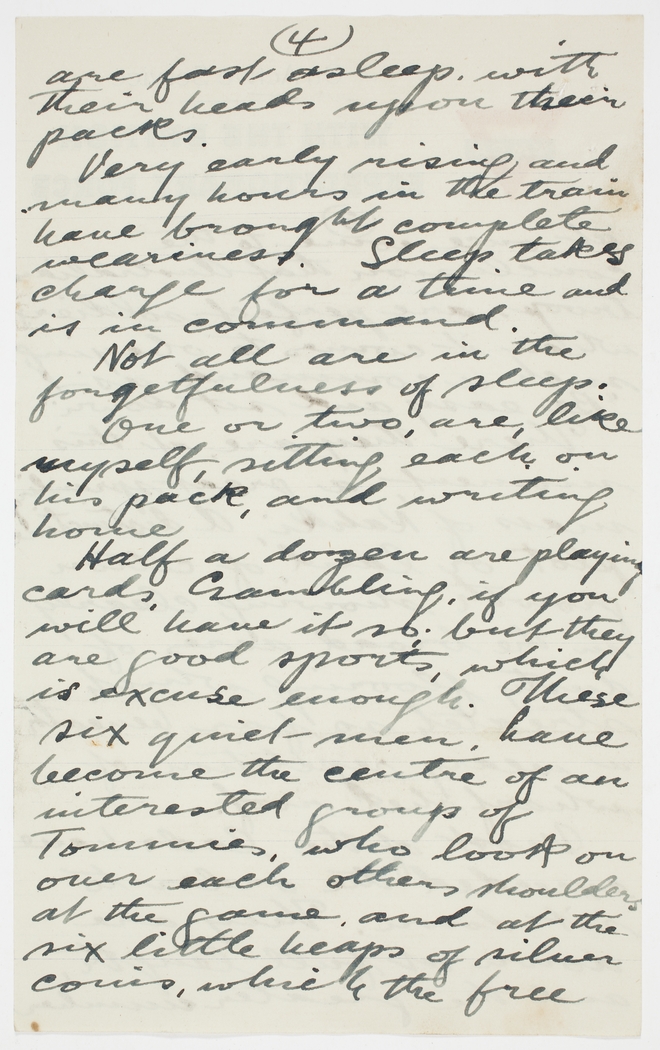 (4)
are fast asleep. with
their heads upon their
packs.
Very early rising and
many hours in the train
have brought complete
weariness. Sleep takes
charge for a time and
is in command.
Not all are in the
forgetfulness of sleep.
One or two, are, like
myself, sitting each on
his pack, and writing
home
Half a dozen are playing
cards, Gambling, if you
will have it so; but they
are good sports, which
is excuse enough. These
six quiet men, have
become the centre of an
interested group of
Tommies, who look on
over each others shoulders
at the game, and at the
six little heaps of silver
coins, which the free